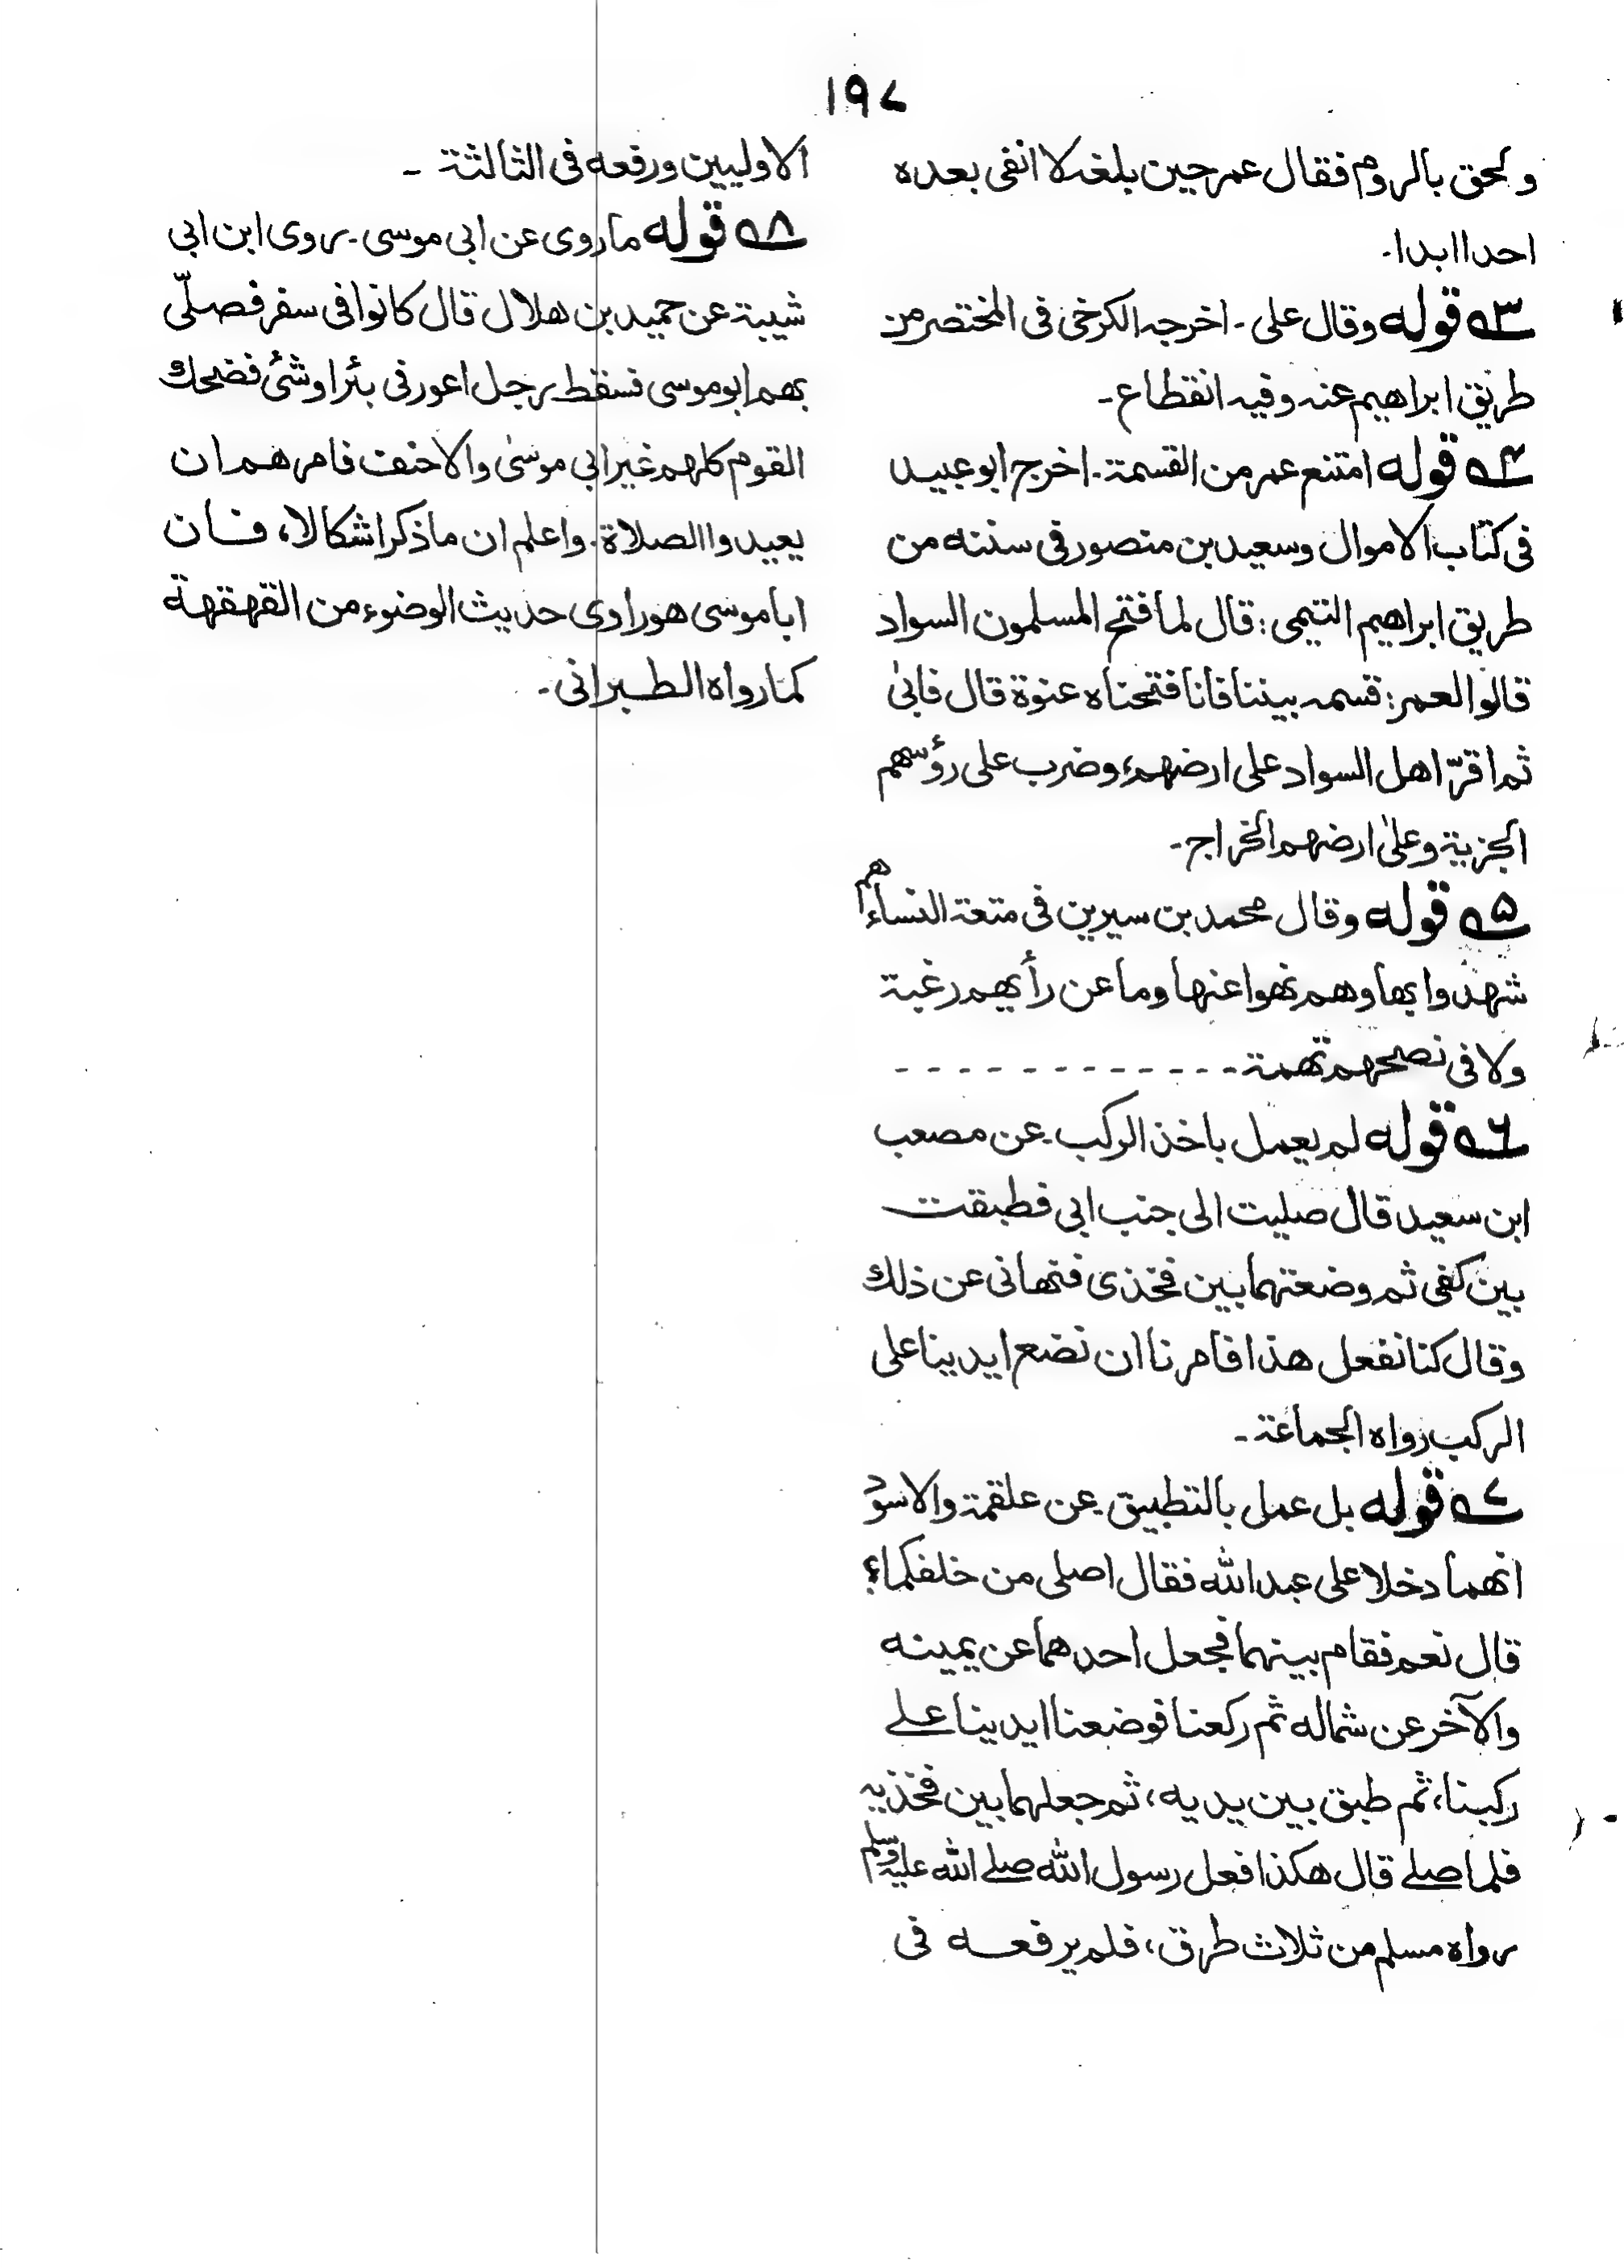 ١٩٧
ولحق بالروم فقال عمر حين بلغه لا انفى بعده
احدا ابدا۔
٣؎ قوله وقال على ۔ اخرجه الكرخى فى المختصر من
طريق ابراهيم عنه وفيه انقطاع ۔
۴؎ قوله امتنع عمر من القسمة ۔ اخرج ابو عبيد
فى كتاب الاموال وسعيد بن منصور فى سننه من
طريق ابراهيم التيمى : قال لما فتح المسلمون السواد
قالوا لعمر : قسمه بيننا فانا فتحناه عنوة قال فابىٰ
ثم اقرّ اهل السواد على ارضهم، وضرب على رؤسهم
الجزية وعلىٰ ارضهم الخراج ۔
۵؎ قوله وقال محمد بن سيرين فى متعة النساء هم
شهدوا بها وهم نهوا عنها وما عن رأيهم رغبة
ولا فى نصحهم تهمة ۔ ۔ ۔ ۔ ۔ ۔ ۔ ۔ ۔ ۔ ۔
۶؎ قوله لم يعمل باخذ الركب ۔ عن مصعب
ابن سعيد قال صليت الى جنب ابى فطبقت
بين كفى ثم وضعتهما بين فخذى فنهانى عن ذلك
وقال كنا نفعل هذا فامرنا ان نضع ايدينا على
الركب رواه الجماعة ۔
٧؎ قوله بل عمل بالتطبيق ۔ عن علقمة والاسود
انهما دخلا على عبد الله فقال اصلى من خلفكما؟
قال نعم فقام بينهما فجعل احدهما عن يمينه
والآخر عن شماله ثم ركعنا فوضعنا ايدينا علے
ركبنا، ثم طبق بين يديه، ثم جعلهما بين فخذيه
فلما صلے قال هكذا فعل رسول الله صلے الله عليه وسلم
رواه مسلم من ثلاث طرق، فلم يرفعه فى
الاوليين ورفعه فى الثالثة ۔
٨؎ قوله ما روى عن ابى موسى ۔ روى ابن ابى
شيبة عن حميد بن هلال قال كانوا فى سفر فصلّى
بهم ابو موسى فسقط رجل اعور فى بئر او شئ فضحك
القوم كلهم غير ابى موسىٰ والاحنف فامرهم ان
يعيدوا الصلاة ۔ واعلم ان ما ذكر اشكالا، فان
ابا موسى هو راوى حديث الوضوء من القهقهة
كما رواه الطبرانى ۔